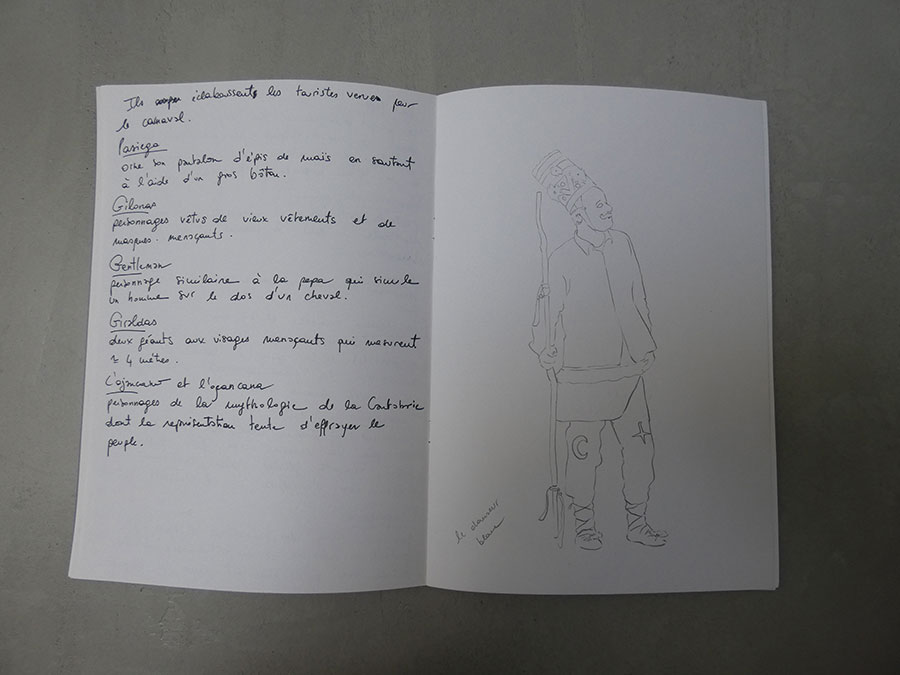 Ils éclaboussent les touristes venus pour
le carnaval.
Pasiega
orne son pantalon d'épis de maïs en sautant
à l'aide d'un gros bâton.
Gilonas
personnages vêtus de vieux vêtements et de
masques menaçants.
Gentleman
personnage similaire à la pepa qui simule
un homme sur le dos d'un cheval.
Giraldas
deux géants aux visages menaçants qui mesurent
≈ 4 mètres.
et l'ojancana
personnages de la mythologie de la Cantabrie
dont la représentation tente d'effrayer le
peuple.
le danseur
blanc